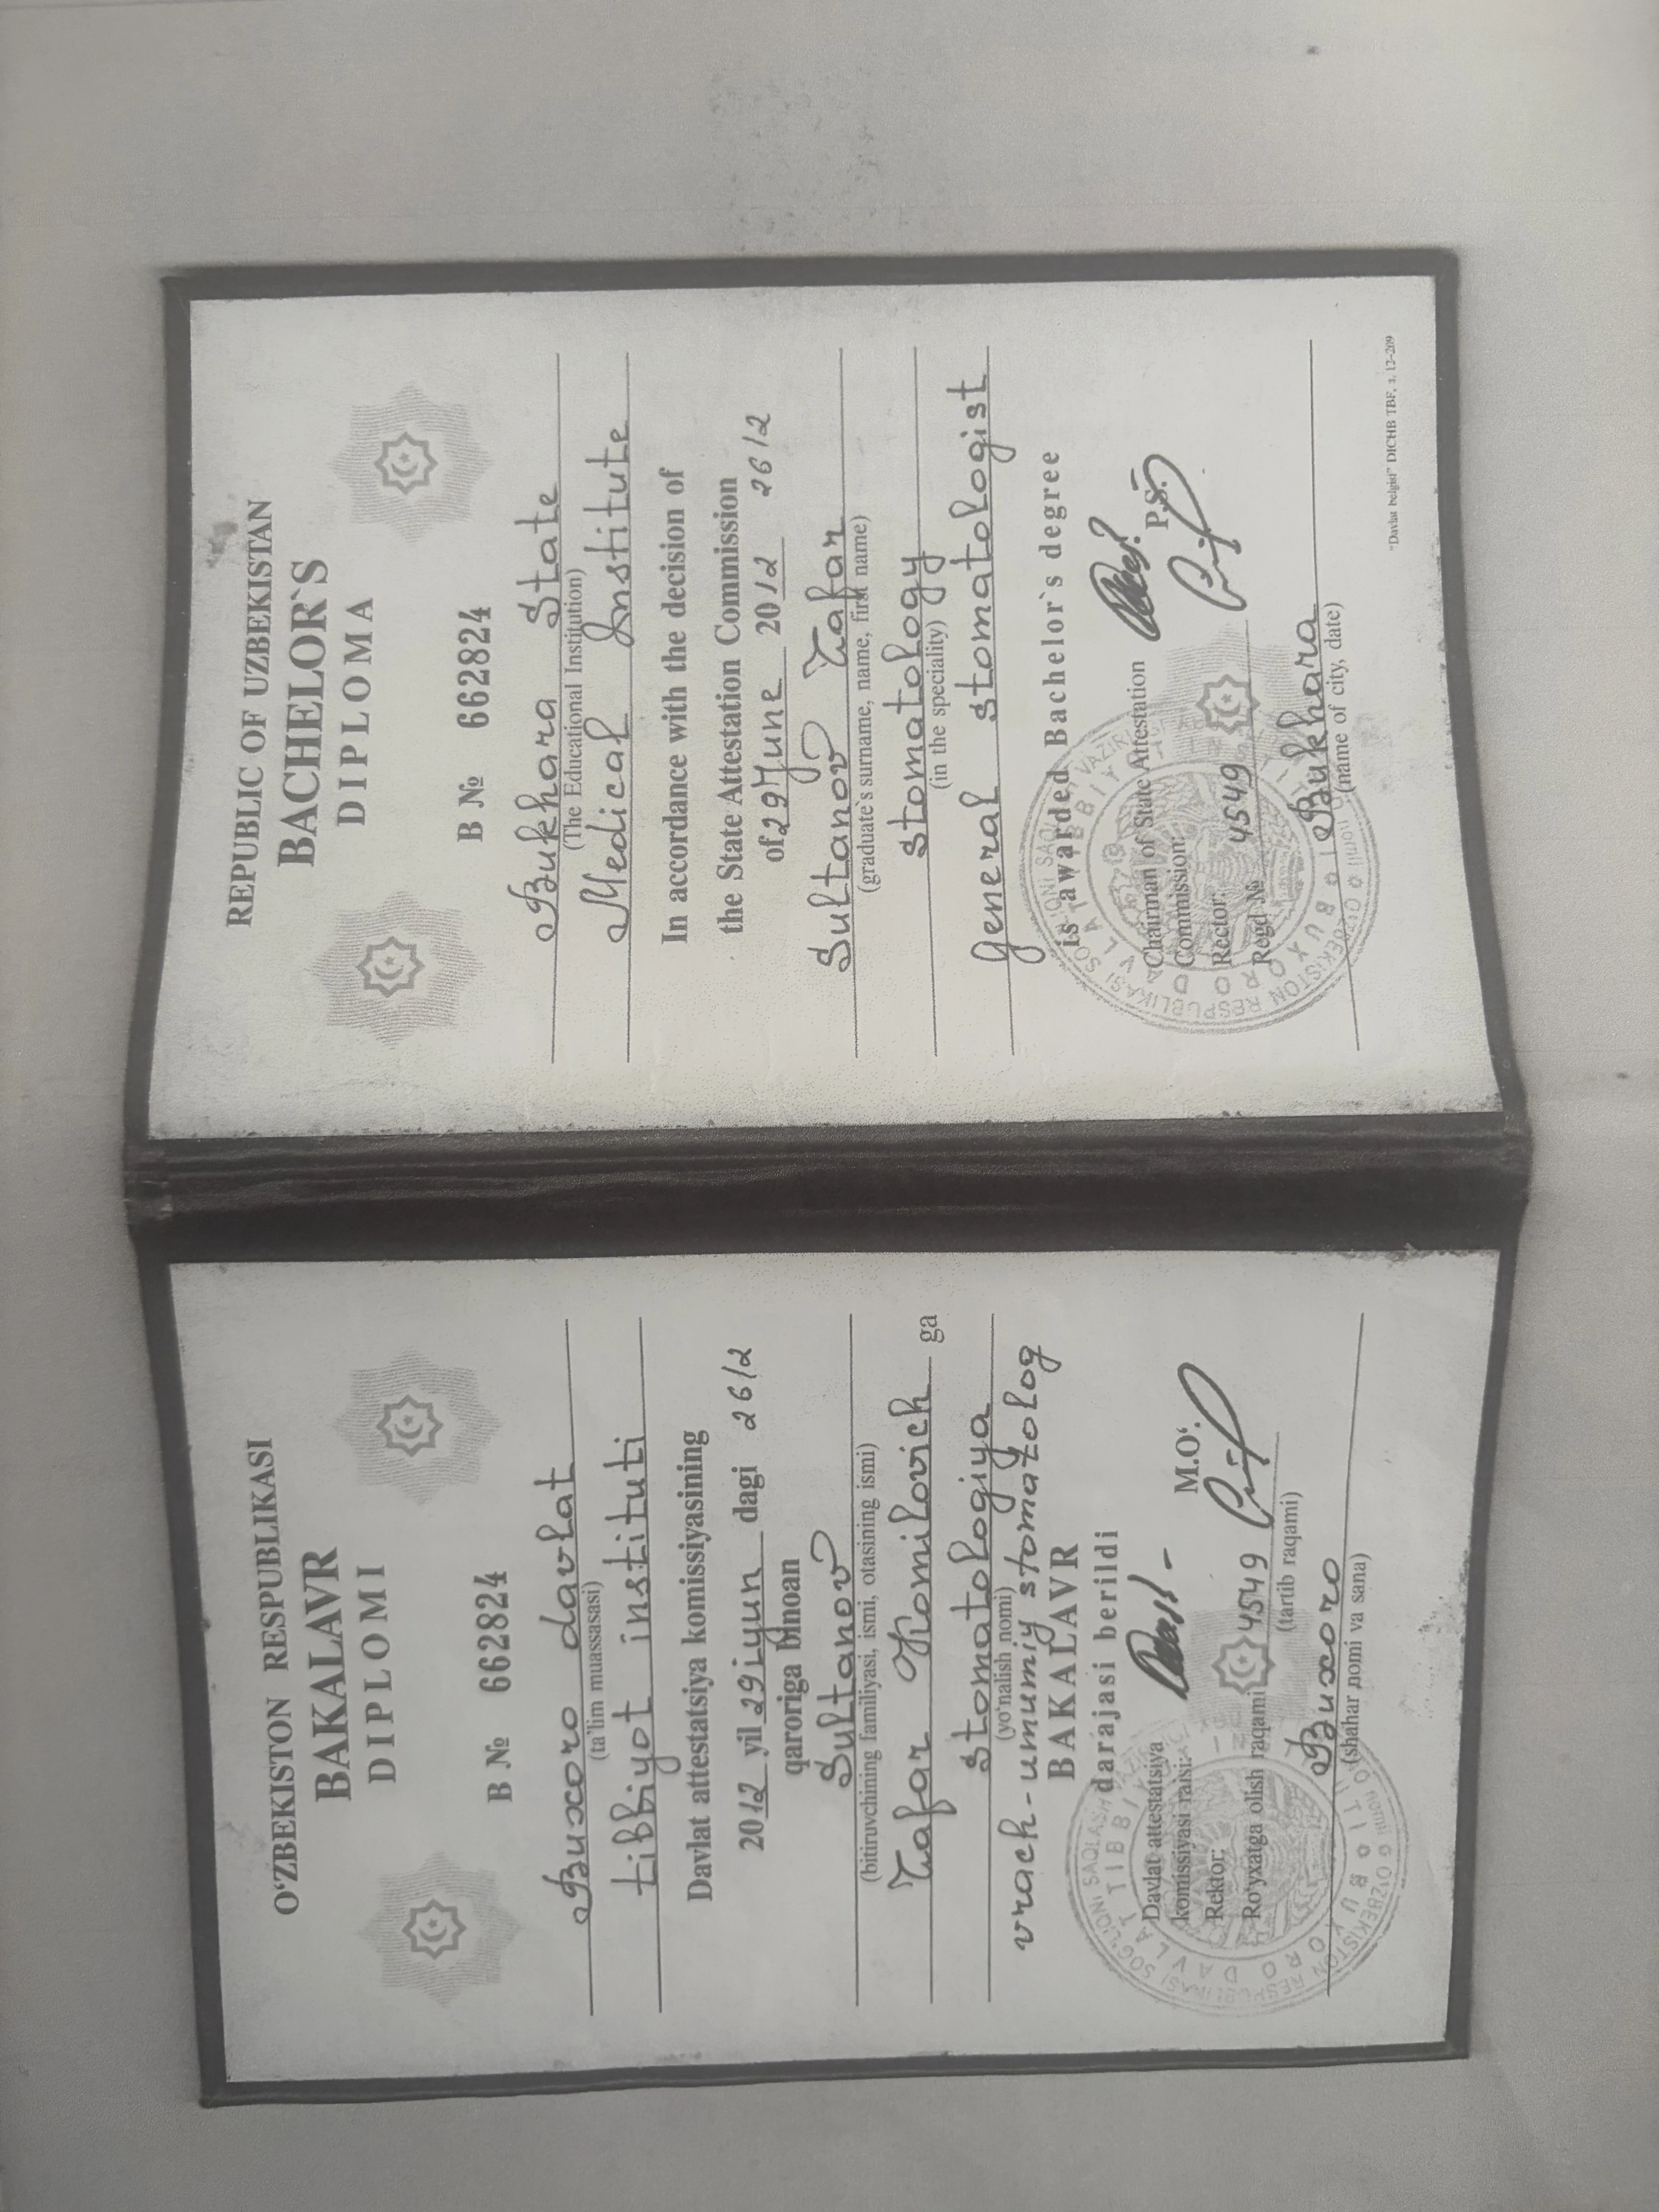 O‘ZBEKISTON RESPUBLIKASI
BAKALAVR
DIPLOMI
B № 662824
Buxoro davlat
(ta’lim muassasasi)
tibbiyot instituti
Davlat attestatsiya komissiyasining
2012 yil 29 iyun dagi 26/2
qaroriga binoan
Sultanov
(bitiruvchining familiyasi, ismi, otasining ismi)
Zafar Komilovich ga
Stomatologiya
(yo‘nalish nomi)
vrach-umumiy stomatolog
BAKALAVR
darajasi berildi
Davlat attestatsiya
komissiyasi raisi:
M.O‘.
Rektor:
Ro‘yxatga olish raqami 4549
(tartib raqami)
Buxoro
(shahar nomi va sana)
REPUBLIC OF UZBEKISTAN
BACHELOR`S
DIPLOMA
B № 662824
Bukhara State
(The Educational Institution)
Medical Institute
In accordance with the decision of
the State Attestation Commission
of 29 June 2012 26/2
Sultanov Zafar
(graduate`s surname, name, first name)
Stomatology
(in the speciality)
General stomatologist
is awarded Bachelor`s degree
Chairman of State Attestation
Commission:
P.S.
Rector:
Regd № 4549
Bukhara
(name of city, date)
"Davlat belgisi" DICHB TBF, z. 12-209